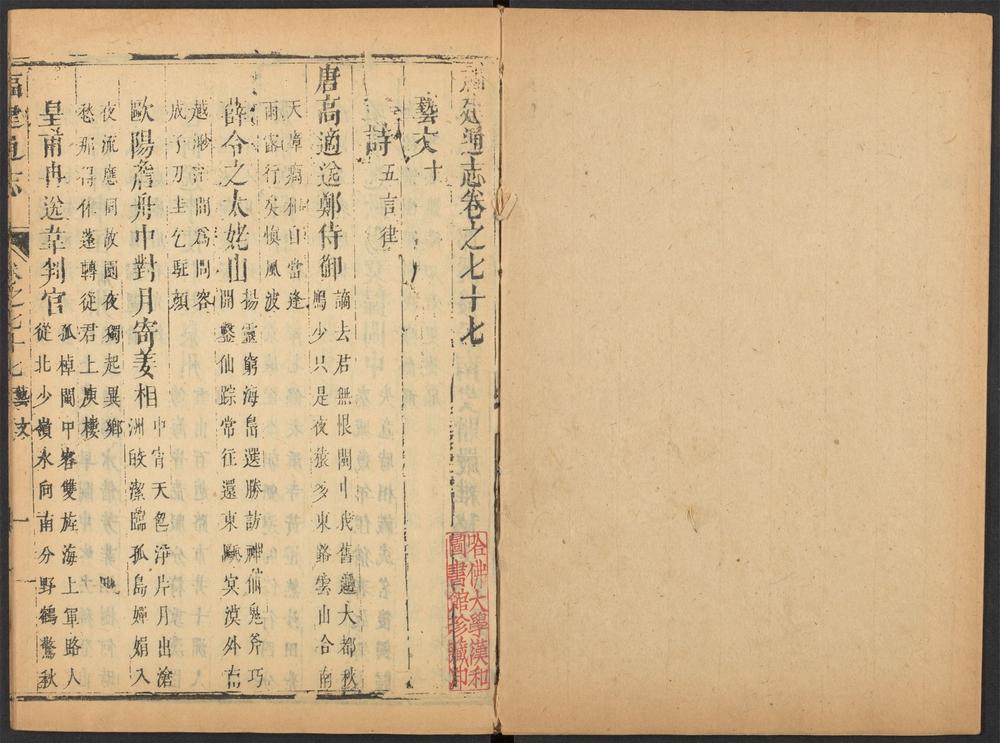 福建通志卷之七十七
藝文十
詩五言律
唐高適送鄭侍御 謫去君無恨閩中我舊過大都秋
鴈少只是夜猿多東路雲山合南
天瘴癘和自當逢
雨露行矣慎風波
薛令之太姥山 揚靈窮海島選勝訪神仙鬼斧巧
開鑿仙踪常往還東甌冥漠外古
越渺茫間爲問容
成子刀圭乞駐顏
歐陽詹舟中對月寄姜相 中宵天色淨片月出滄
洲皎潔臨孤島嬋娟入
夜流應同故園夜獨起異鄉
愁那得休蓬轉從君上庾樓
皇甫冉送韋判官 孤棹閩中客雙旌海上軍路人
從北少嶺水向南分野鶴驚秋
福建通志
卷之七十七 藝文 一
哈佛大學漢和
圖書館珍藏印